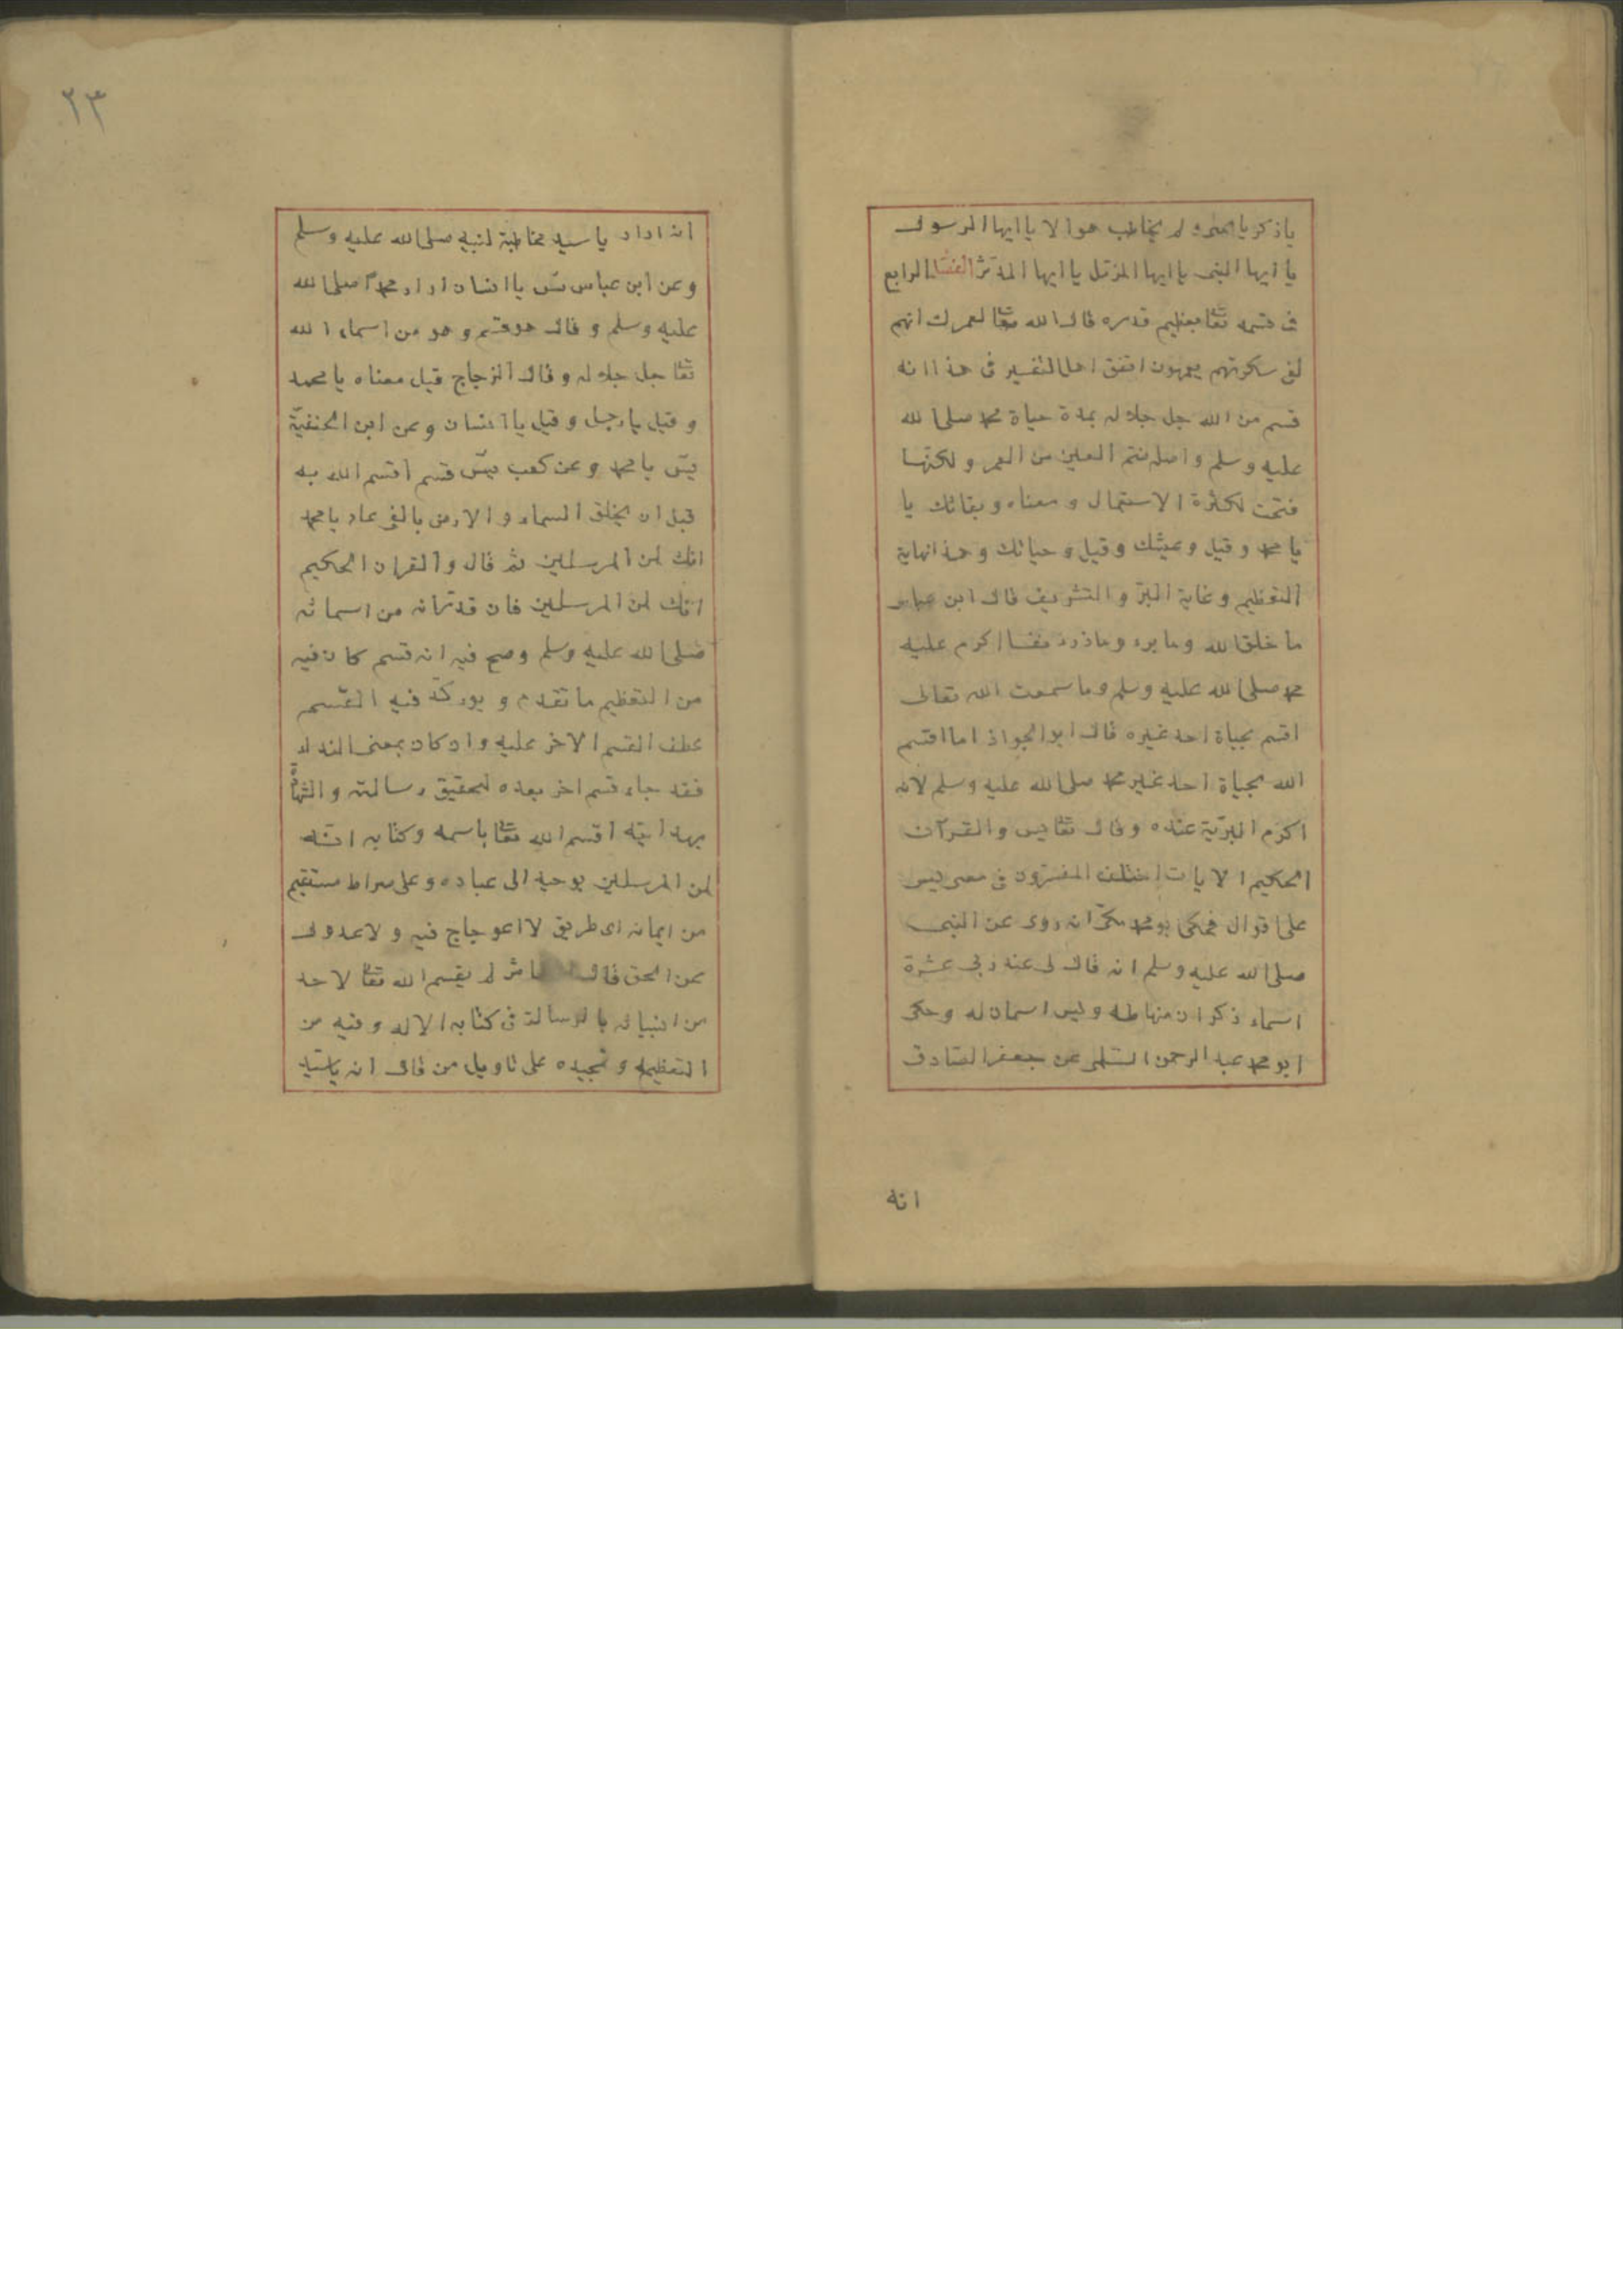 ياذكريا يايحيى ولم يخاطب هوالا ياايها الرسول
يا ايها النبى ياايها المزمل ياايها المدثر الفصل الرابع
فى قسمه تعا بعظيم قدره قال الله تعا لعمرك انهم
لفى سكرتهم يعمهون اتفق اهل التفسير فى هذا انه
قسم من الله جل جلاله بمدة حياة محمد صلى الله
عليه وسلم واصله ضم العين من العمر ولكنها
فتحت لكثرة الاستعمال ومعناه وبقائك يا
يا محمد وقيل وعيشك وقيل وحياتك وهذا نهاية
التعظيم وغاية البرّ والتشريف قال ابن عباس
ما خلق الله وما برء وما ذرء نفسا اكرم عليه
محمد صلى الله عليه وسلم وما سمعت الله تعالى
اقسم بحياة احد غيره قال ابو الجواز اما اقسم
الله بحياة احد غير محمد صلى الله عليه وسلم لانه
اكرم البريّة عنده وقال تعا يس والقرآن
الحكيم الايات اختلف المفسّرون فى معنى يس
على اقوال فحكى بو محمد مكّى انه روى عن النبى
صلى الله عليه وسلم انه قال لى عند ربى عشرة
اسماء ذكر ان منها طه ويس اسمان له وحكى
ابو محمد عبد الرحمن السّلمى عن جعفر الصّادق
انه
٢٣
انه اراد ياسيد مخاطبة لنبيه صلى الله عليه وسلم
وعن ابن عباس يس ياانسان اراد محمدًا صلى الله
عليه وسلم وقال هو قسم وهو من اسماء الله
تعا جل جلاله وقال الزجاج قيل معناه يا محمد
وقيل يا رجل وقيل ياانسان وعن ابن الحنفيّة
يس يا محمد وعن كعب يس قسم اقسم الله به
قبل ان يخلق السماء والارض بالفى عام يا محمد
انك لمن المرسلين ثم قال والقران الحكيم
انك لمن المرسلين فان قدّر انه من اسمائه
صلى الله عليه وسلم وصح فيه انه قسم كان فيه
من التعظيم ما تقدم ويوركّد فيه القسم
عطف القسم الاخر عليه وان كان بمعنى النداء
فقد جاء قسم اخر بعده لتحقيق رسالته والشهادة
بهدايته اقسم الله تعا باسمه وكتابه انّه
لمن المرسلين بوحيه الى عباده وعلى صراط مستقيم
من ايمانه اى طريق لا اعوجاج فيه ولا عدول
عن الحق قال لم يقسم الله تعا لاحد
من انبيائه بالرسالة فى كتابه الا له وفيه من
التعظيمه وتمجيده على تاويل من قال انه ياسيّد